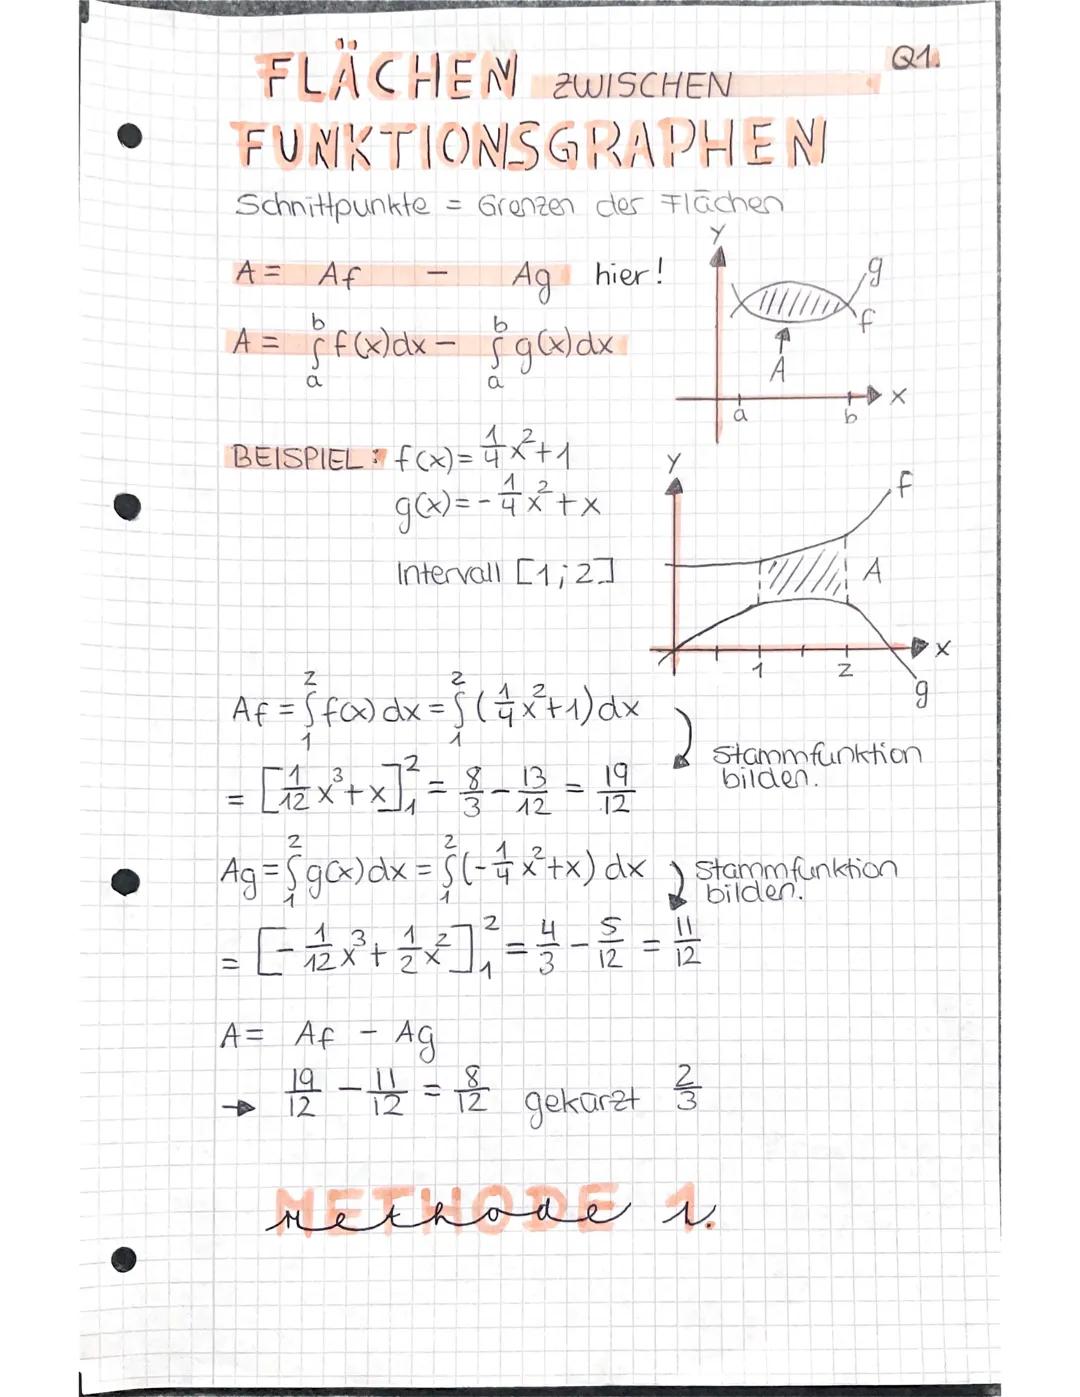 Q1.
FLÄCHEN ZWISCHEN
FUNKTIONSGRAPHEN
Schnittpunkte = Grenzen der Flächen
A = Af - Ag hier!
A = ∫_a^b f(x)dx - ∫_a^b g(x)dx
y
g
f
A
a b x
BEISPIEL: f(x) = 1/4 x² + 1
g(x) = - 1/4 x² + x
Intervall [1; 2]
y
f
A
1 2 x
g
Af = ∫_1^2 f(x) dx = ∫_1^2 (1/4 x² + 1) dx
Stammfunktion
bilden.
= [1/12 x³ + x]_1^2 = 8/3 - 13/12 = 19/12
Ag = ∫_1^2 g(x) dx = ∫_1^2 (- 1/4 x² + x) dx
Stammfunktion
bilden.
= [- 1/12 x³ + 1/2 x²]_1^2 = 4/3 - 5/12 = 11/12
A = Af - Ag
→ 19/12 - 11/12 = 8/12 gekürzt 2/3
METHODE 1.